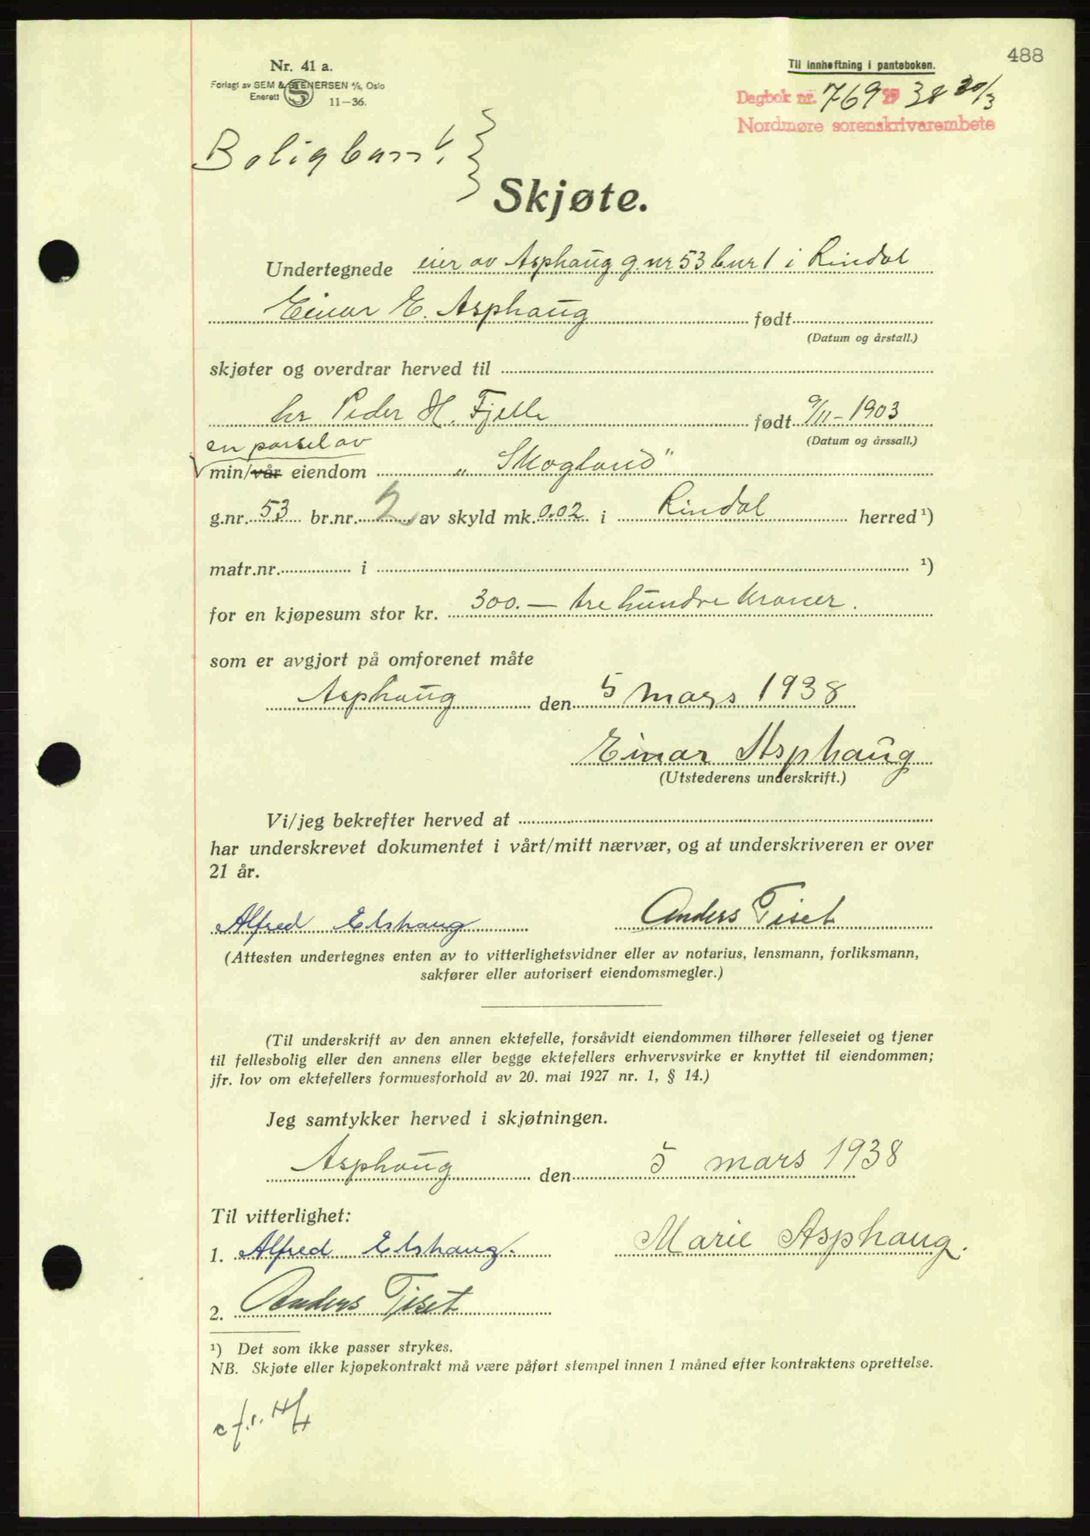 488
Nr. 41 a.
Forlagt av SEM & STENERSEN A/S, Oslo
Enerett S 11-36.
Til innheftning i panteboken.
Dagbok nr. 769 19 38 30/3
Nordmøre sorenskrivarembete
Skjøte.
Undertegnede eier av Asphaug g.nr 53 bnr 1 i Rindal
Einar E. Asphaug født
(Datum og årstall.)
skjøter og overdrar herved til
hr Peder H. Fjelle født 9/11-1903
(Datum og årssall.)
en parsel av
min/vår eiendom „Skogland"
g.nr. 53 br.nr. 2 av skyld mk. 0.02 i Rindal herred ¹)
matr.nr. i ¹)
for en kjøpesum stor kr. 300.— tre hundre kroner.
som er avgjort på omforenet måte
Asphaug den 5 mars 1938
Einar Asphaug
(Utstederens underskrift.)
Vi/jeg bekrefter herved at
har underskrevet dokumentet i vårt/mitt nærvær, og at underskriveren er over
21 år.
Alfred Elshaug Anders Tiset
(Attesten undertegnes enten av to vitterlighetsvidner eller av notarius, lensmann, forliksmann,
sakfører eller autorisert eiendomsmegler.)
(Til underskrift av den annen ektefelle, forsåvidt eiendommen tilhører felleseiet og tjener
til fellesbolig eller den annens eller begge ektefellers erhvervsvirke er knyttet til eiendommen;
jfr. lov om ektefellers formuesforhold av 20. mai 1927 nr. 1, § 14.)
Jeg samtykker herved i skjøtningen.
Asphaug den 5 mars 1938
Til vitterlighet:
1. Alfred Elshaug. Marie Asphaug.
2. Anders Tiset
¹) Det som ikke passer strykes.
NB. Skjøte eller kjøpekontrakt må være påført stempel innen 1 måned efter kontraktens oprettelse.